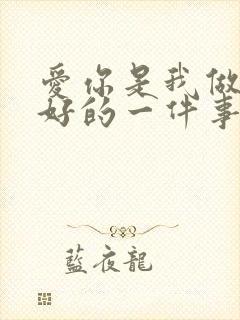 愛你是我做
好的一件事
藍夜龍